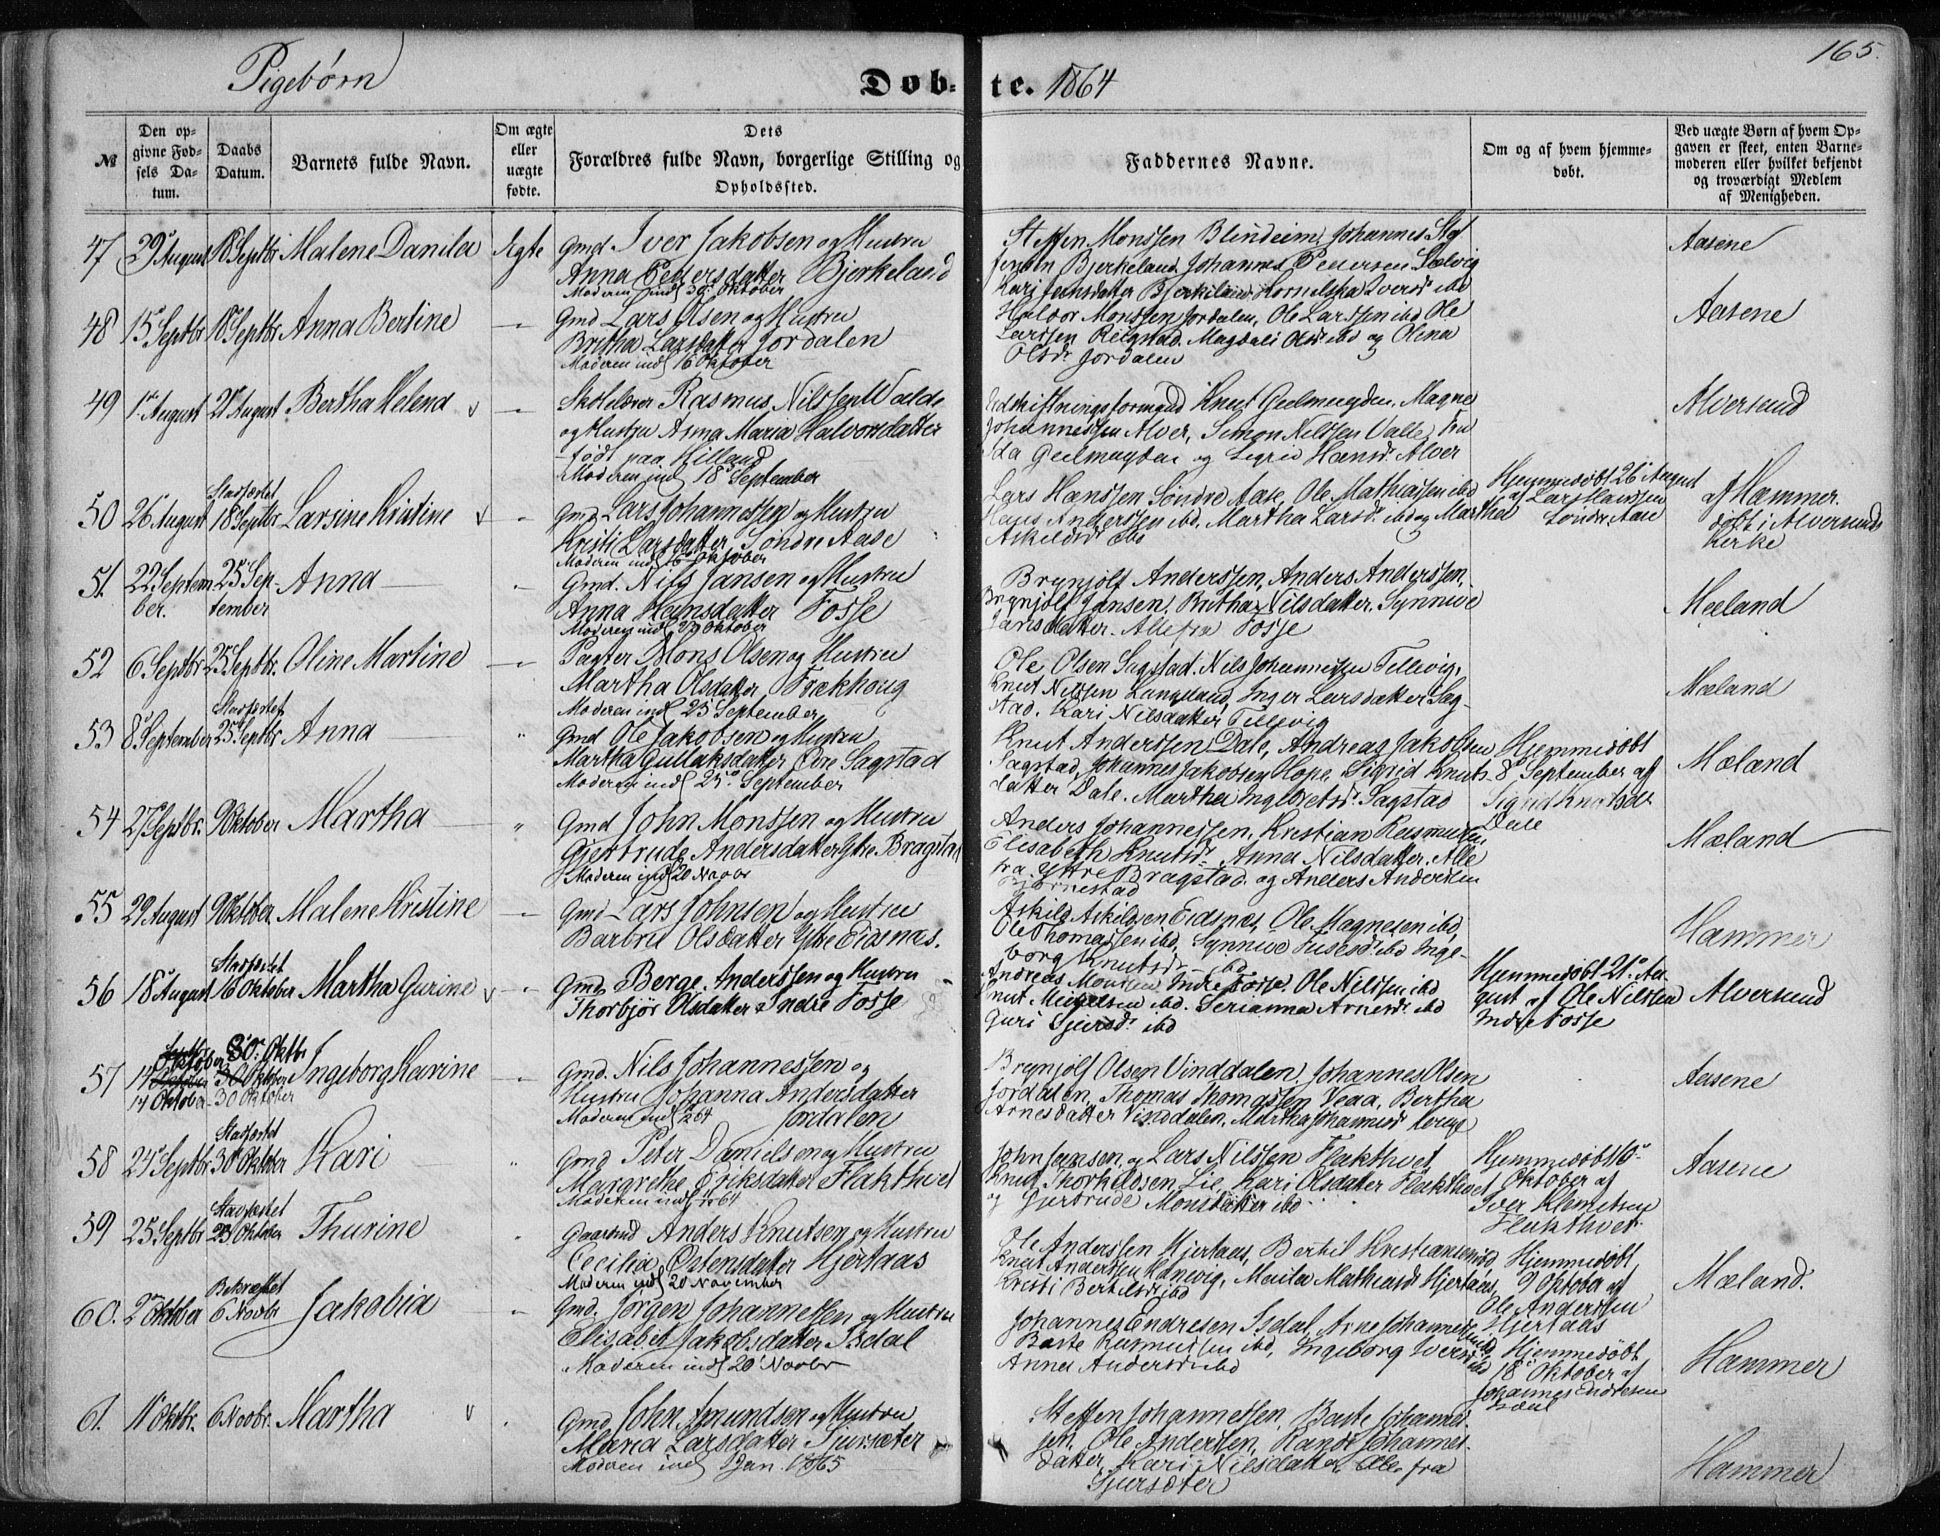 165.
Pigebørn
Døb-
te. 1864
№
Den op-
givne Fød-
sels Da-
tum.
Daabs
Datum.
Barnets fulde Navn.
Om ægte
eller
uægte
fødte.
Dets
Forældres fulde Navn, borgerlige Stilling og
Opholdssted.
Faddernes Navne.
Om og af hvem hjemme-
døbt.
Ved uægte Børn af hvem Op-
gaven er skeet, enten Barne-
moderen eller hvilket bekjendt
og troværdigt Medlem
af Menigheden.
47 29 August 18 Septbr Malene Danila Ægte
Gmd Iver Jakobsen og Hustru
Anna Pedersdatter Bjerkeland
Moderen indl 30 Oktober
Steffen Monssen Blindeim, Johannes Stef
fensen Bjerkeland Johannes Pedersen Sælvig
Kari Jensdatter Bjerkeland Iversdr ibd
Aasene
48 15 Septbr 18 Septbr Anna Bertine
Gmd Lars Olsen og Hustru
Britha Larsdatter Jordalen
Moderen indl 16 Oktober
Haldor Monssen Jordalen, Ole Larssen ibd Ole
Larssen Reigstad. Magdali Olsdr ibd og Olena
Olsdr Jordalen
Aasene
49 1 August 21 August Bertha Helena v
Skolelærer Rasmus Nilssen Valde
og Hustru Anna Maria Halvorsdatter
født paa Hilland
Moderen indl 18 September
Udskiftningsformand Knut Geelmuyden. Magne
Johannessen Alver, Simon Nilssen Valle, Fru
Ida Geelmuyden og Sigrid Hansdr Alver
Alversund
50 26 August Stadfæstet
18 Septbr Larsine Kristine v
Gmd Lars Johannessen og Hustru
Kristi Larsdatter Søndre Aase
Moderen indl 16 Oktober
Lars Hanssen Søndre Aase, Ole Mathiassen ibd
Hans Anderssen ibd. Martha Larsdr ibd og Martha
Askildsdr ibd
Hjemmedøbt 26 August
af Lars Hanssen
Søndre Aase
af Hammer.
døbt i Alversunds
Kirke
51 22 Septem
ber. 25 Sep
tember Anna
Gmd. Nils Jansen og Hustru
Anna Hansdatter Fosse
Moderen indl 23 Oktober
Brynjolf Anderssen, Anders Anderssen,
Brynjolf Jansen, Britha Nilsdatter. Synnive
Jansdatter. Alle fra Fosse
Mæland
52 6 Septbr 25 Septbr. Oline Martine
Pagter Mons Olsen og Hustru
Martha Olsdatter Frækhoug
Moderen indl 25 September
Ole Olsen Sagstad. Nils Johannessen Tellevig,
Knut Nilssen Langeland, Inger Larsdatter Sag-
stad. Kari Nilsdatter Tellevig
Mæland
53 8 September Stadfæstet
25 Septbr Anna
Gmd Ole Jakobsen og Hustru
Martha Gullaksdatter Øvre Sagstad
Moderen indl 25 September
Knut Anderssen Dale, Andreas Jakobsen
Sagstad, Johannes Jakobsen Hope, Sigrid Knuts
datter Dale. Martha Ingebretsdr Sagstad
Hjemmedøbt
8 September af
Sigrid Knutsdr
Dale
Mæland
54 27 Septbr. 9 Oktober Martha
Gmd John Monssen og Hustru
Gjertrude Andersdatter Ytre Bragstad
Moderen indl 20 Novbr
Anders Johannessen, Kristian Rasmussen
Elisabeth Knutsdr. Anna Nilsdatter. Alle
fra Yttre Bragstad. og Anders Anderssen
Bjørnestad
Mæland
55 29 August 9 Oktober. Malene Kristine
Gmd Lars Johnsen og Hustru
Barbru Olsdatter Ytre Eidsnæs.
Askild Askildsen Eidsnæs, Ole Magnesen ibd,
Ole Thomassen ibd, Synnive ibd Inge-
borg Knutsdr ibd
Hammer
56 18 August Stadfæstet
16 Oktober Martha Gurine v
Gmd Berge Anderssen og Hustru
Thorbjør Olsdatter Indre Fosse
Andreas Monsen Indre Fosse, Ole Nilssen ibd
Knut Magnesen ibd. Serianna Arnesdr ibd
Guri ibd
Hjemmedøbt 21 Au
gust af Ole Nilssen
Indre Fosse
Alversund
57 14 Oktober 30 Oktbr
14 Oktober 30 Oktober Ingeborg Karine
Gmd. Nils Johannessen og
Hustru Johanna Andersdatter
Moderen indl Jordalen
Brynjolf Olsen Vinddalen, Johannes Olsen
Jordalen, Thomas Thomassen Veaa, Bertha
Arnesdatter Vinddalen, Martha Johannesdr
Aasene
58 24 Septbr. Stadfæstet
30 Oktober Kari
Gmd Peter Danielsen og Hustru
Margrethe Eriksdatter Flakthvet
Moderen indl
John Jansen og Lars Nilssen Flakthvet,
Knut Thorkildsen Lie, Kari Olsdatter Flakthvet
og Gjertrude Monsdatter ibd
Hjemmedøbt 16
Oktober af
Iver Klemetsen
Flakthvet
Aasene
59 25 Septbr Stadfæstet
23 Oktober Thurine
Gaardmd Anders Knutsen og Hustru
Cecilia Østensdatter Hjertaas
Moderen indl 20 November
Ole Anderssen Hjertaas, Bertil Kristiansen ibd
Knut Anderssen Marila Mathiasdr Hjertaas
Kristi Bertilsdr ibd
Hjemmedøbt
9 Oktober af
Ole Anderssen
Hjertaas
Mæland.
60. 2 Oktober Bekræftet
6 Novbr Jakobia
Gmd. Jørgen Johannessen og Hustru
Elisabet Jakobsdatter Isdal
Moderen indl 20 Novbr
Johannes Endresen Isdal Arne Johannessen ibd
Baste Rasmussen ibd, Ingeborg Iversdr ibd
Anna Andersdr ibd
Hjemmedøbt
18 Oktober af
Johannes Endresen
Isdal
Hammer
61. 11 Oktbr. 6 Novbr. Martha v
Gmd John Amundsen og Hustru
Maria Larsdatter Tjursæter
Moderen indl Jan. 1865
Steffen Johannessen, Baste Johannes
sen. Ole Anderssen, Randi Johannes
datter, Kari Nilsdatter, Alle fra
Tjursæter
Hammer